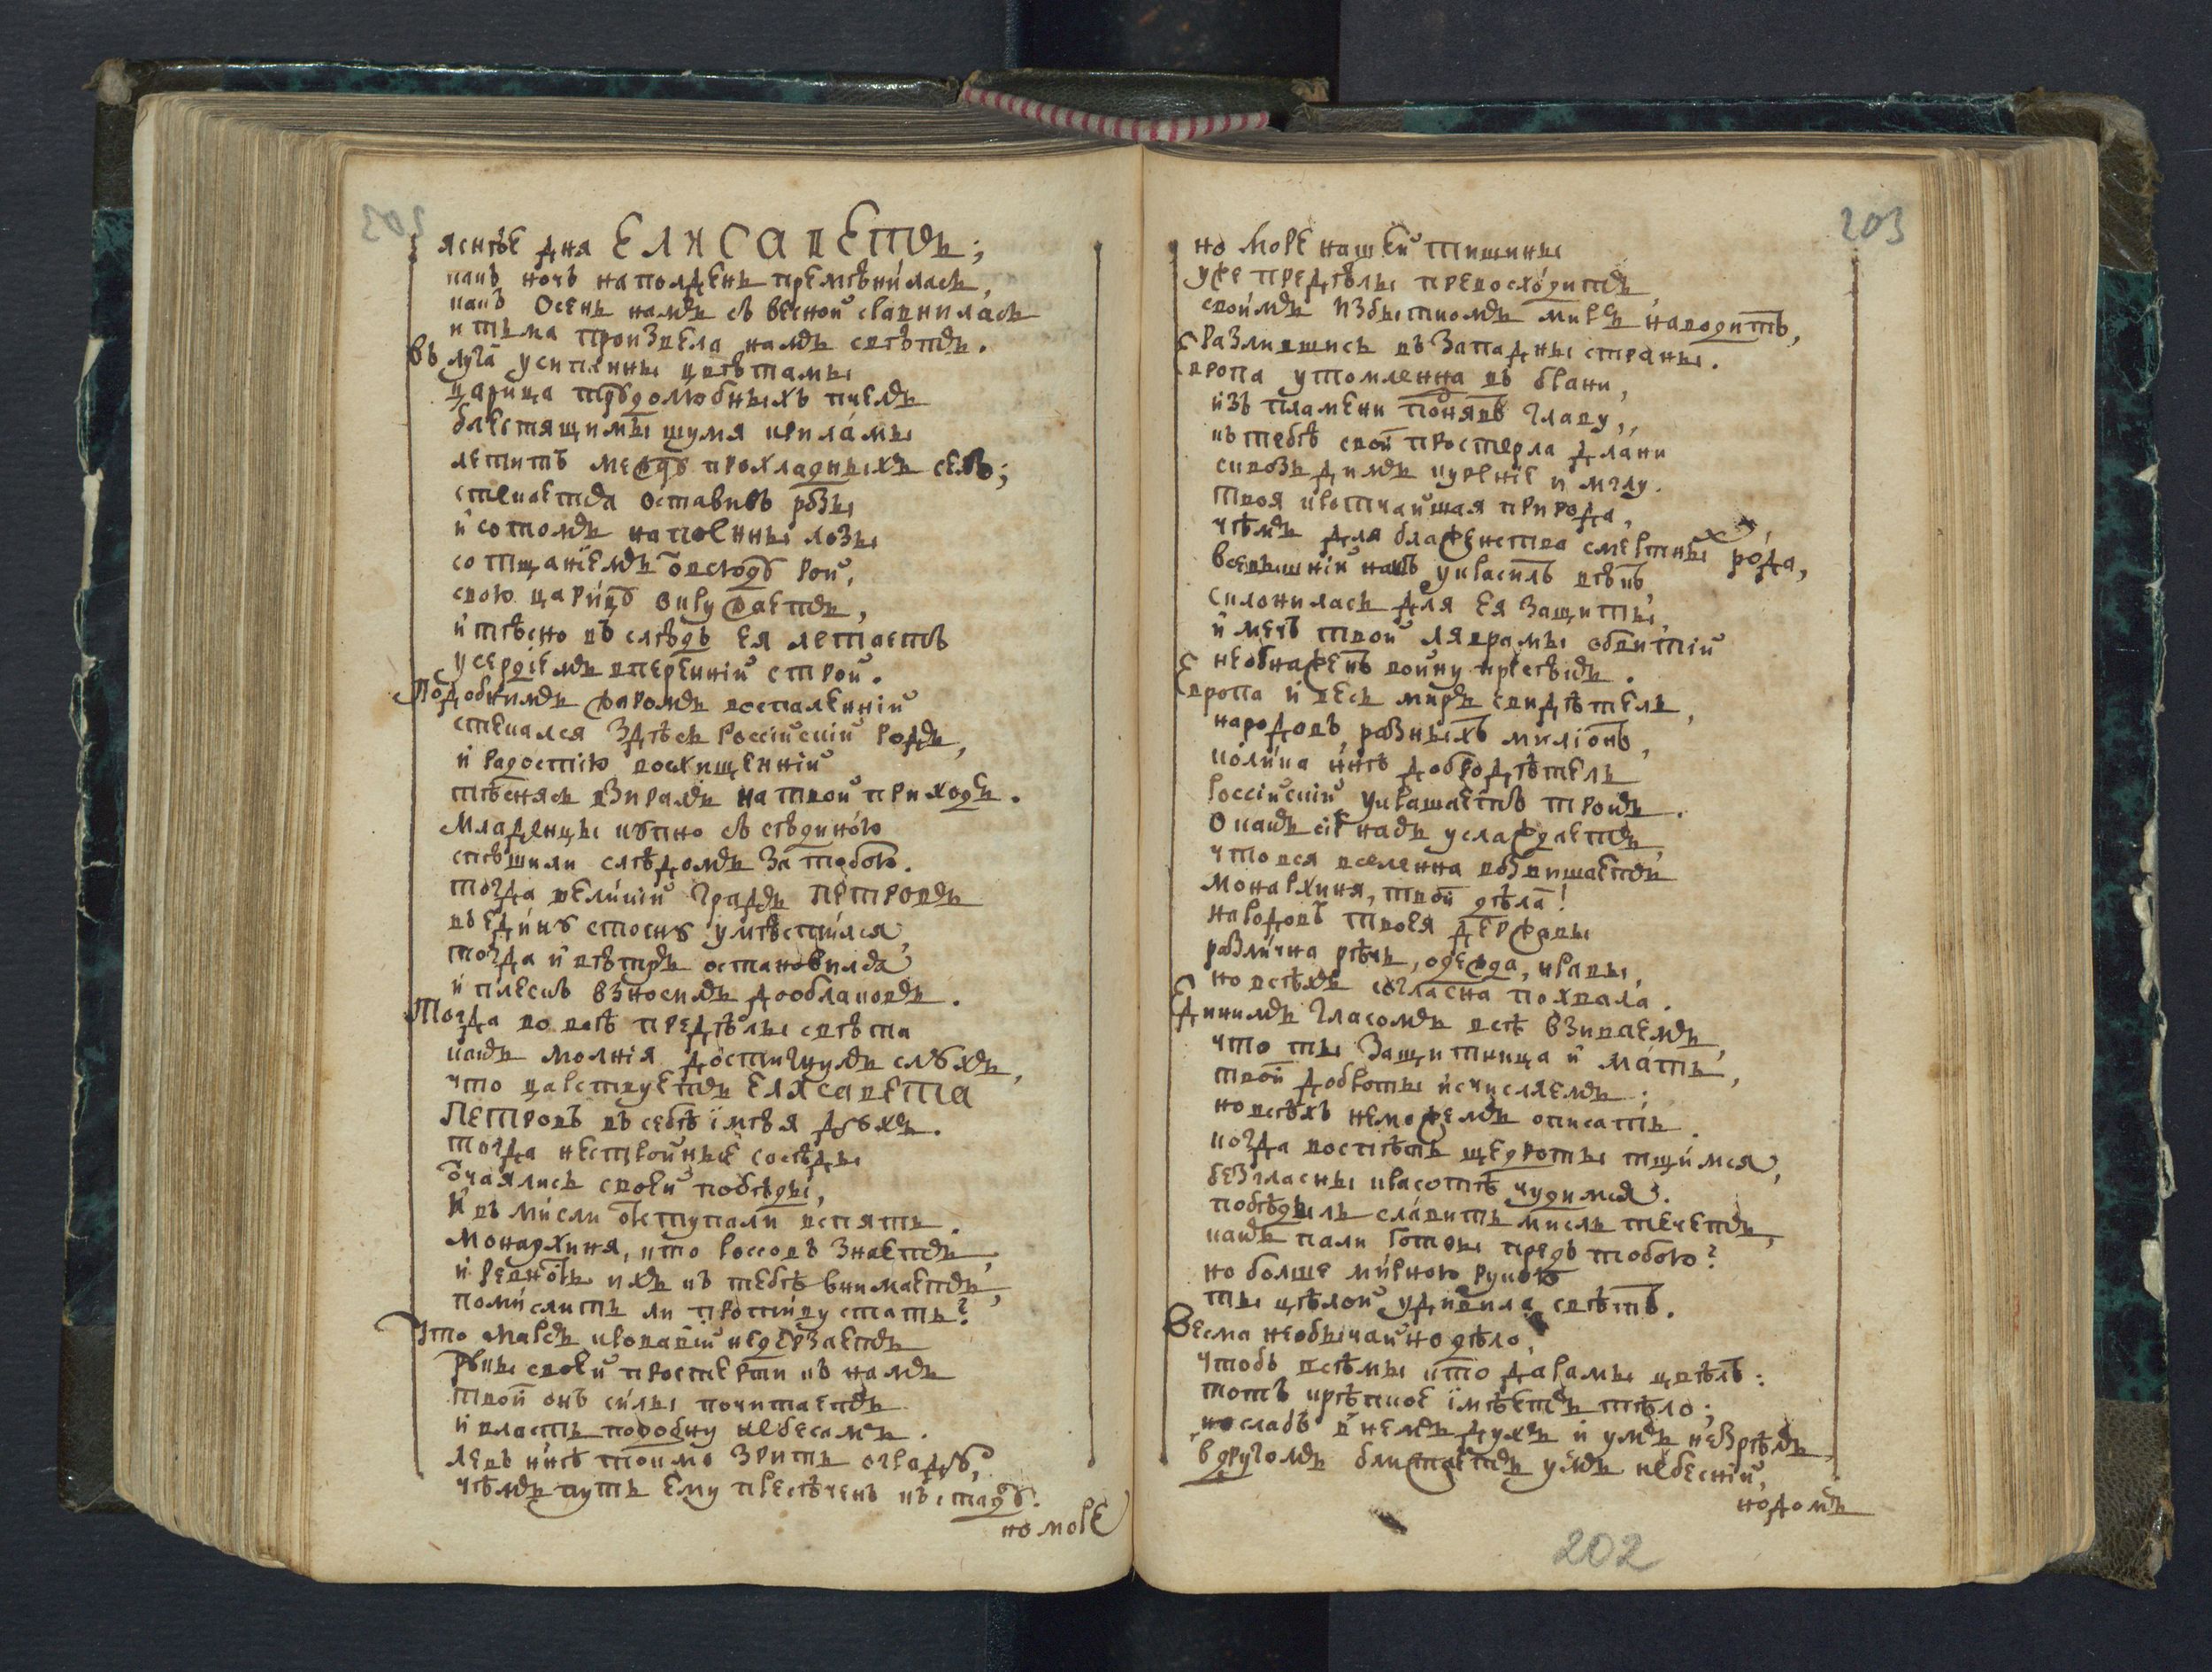 яснѣе дня ЕЛИСАВЕТЪ;
какъ ночь на полдень премѣнилась,
какъ Осень намъ съ весной сравнилась
и тьма произвела намъ свѣтъ.
Въ луга усипанны цвѣтамы
царица трудолюбныхъ пчелъ
блестящимы шумя крилами
летитъ между прохладныхъ селъ;
стекается оставивъ розы
и сотомъ напоенны лозы
со тщаніемъ ѡвсюду рой,
свою царицу окружаетъ,
и тѣсно въ слѣдъ ея летаетъ
усердіемъ вперенній строй.
Подобнимъ жаромъ воспаленній
стекался здѣсь Россійскій родъ,
и радостію восхищенній
тѣснясь взиралъ на твой приходъ.
Младенцы купно съ сѣдиною
спѣшили слѣдомъ за тобою.
тогда великій градъ ПЕТРОВЪ
въ едину стогну умѣстился,
тогда и вѣтръ остановился
и плескъ взносилъ до облаковъ.
Тогда во всѣ предѣлы свѣта
какъ молнія достигнулъ слухъ,
что царствуетъ ЕЛИСАВЕТА
ПЕТРОВЪ въ себѣ імѣя духъ.
тогда нестройные сосѣды
ѡчаялись своей побѣды,
И въ мисли ѡтступали вспять.
Монархиня, кто Россовъ знаетъ,
и ревность ихъ къ тебѣ внимаетъ,
помислитъ ли противу стать?
Что Марсъ кровавій недерзаетъ
руки своей простерти къ намъ
твои онъ силы почитаетъ
и власть подобну небесамъ.
левъ нинѣ токмо зритъ ограду,
чѣмъ путь ему пресѣченъ къ стаду.
но море
203
но море нашей тишины
уже предѣлы превосходитъ,
своимъ избыткомъ миръ наводитъ,
разлившись въ западны страны.
Европа утомленна въ брани,
изъ пламени поднявъ главу,
къ тебѣ свои простерла длани
сквозь димъ куреніе и мглу.
твоя кротчайшая природа,
чѣмъ для блаженства смертны рода,
всевышній нашъ украсилъ вѣкъ,
склонилась для ея защиты,
и мечъ твой лаврамы обвитій
необнаженъ войну пресѣкъ.
Европа и весь миръ свидѣтель,
народовъ разныхъ миліонъ,
колика нинѣ добродѣтель
Россійскій украшаетъ тронъ.
О какъ сіе насъ услаждаетъ,
что вся вселенна возвишаетъ
Монархиня, твои дѣла!
народовъ твоея державы
различна рѣчь, одежда, нравы,
но всѣхъ согласна похвала.
Единимъ гласомъ всѣ взиваемъ,
что ты Защитница и мать,
твои доброты исчисляемъ;
но всѣхъ неможемъ описать.
когда воспѣть щедроты тщимся,
безгласны красотѣ чудимся.
побѣды ль славить мисль течетъ,
какъ пали Готоы предъ тобою?
но болше мирною рукою
ты цѣлой удивила свѣтъ.
Весма необычайно дѣло,
чтобъ всѣмы кто дарамы цвѣлъ:
тотъ крѣпкое імѣетъ тѣло;
но слабъ в немъ духъ и умъ незрѣлъ,
в другомъ блистаетъ умъ небесній,
но домъ
202